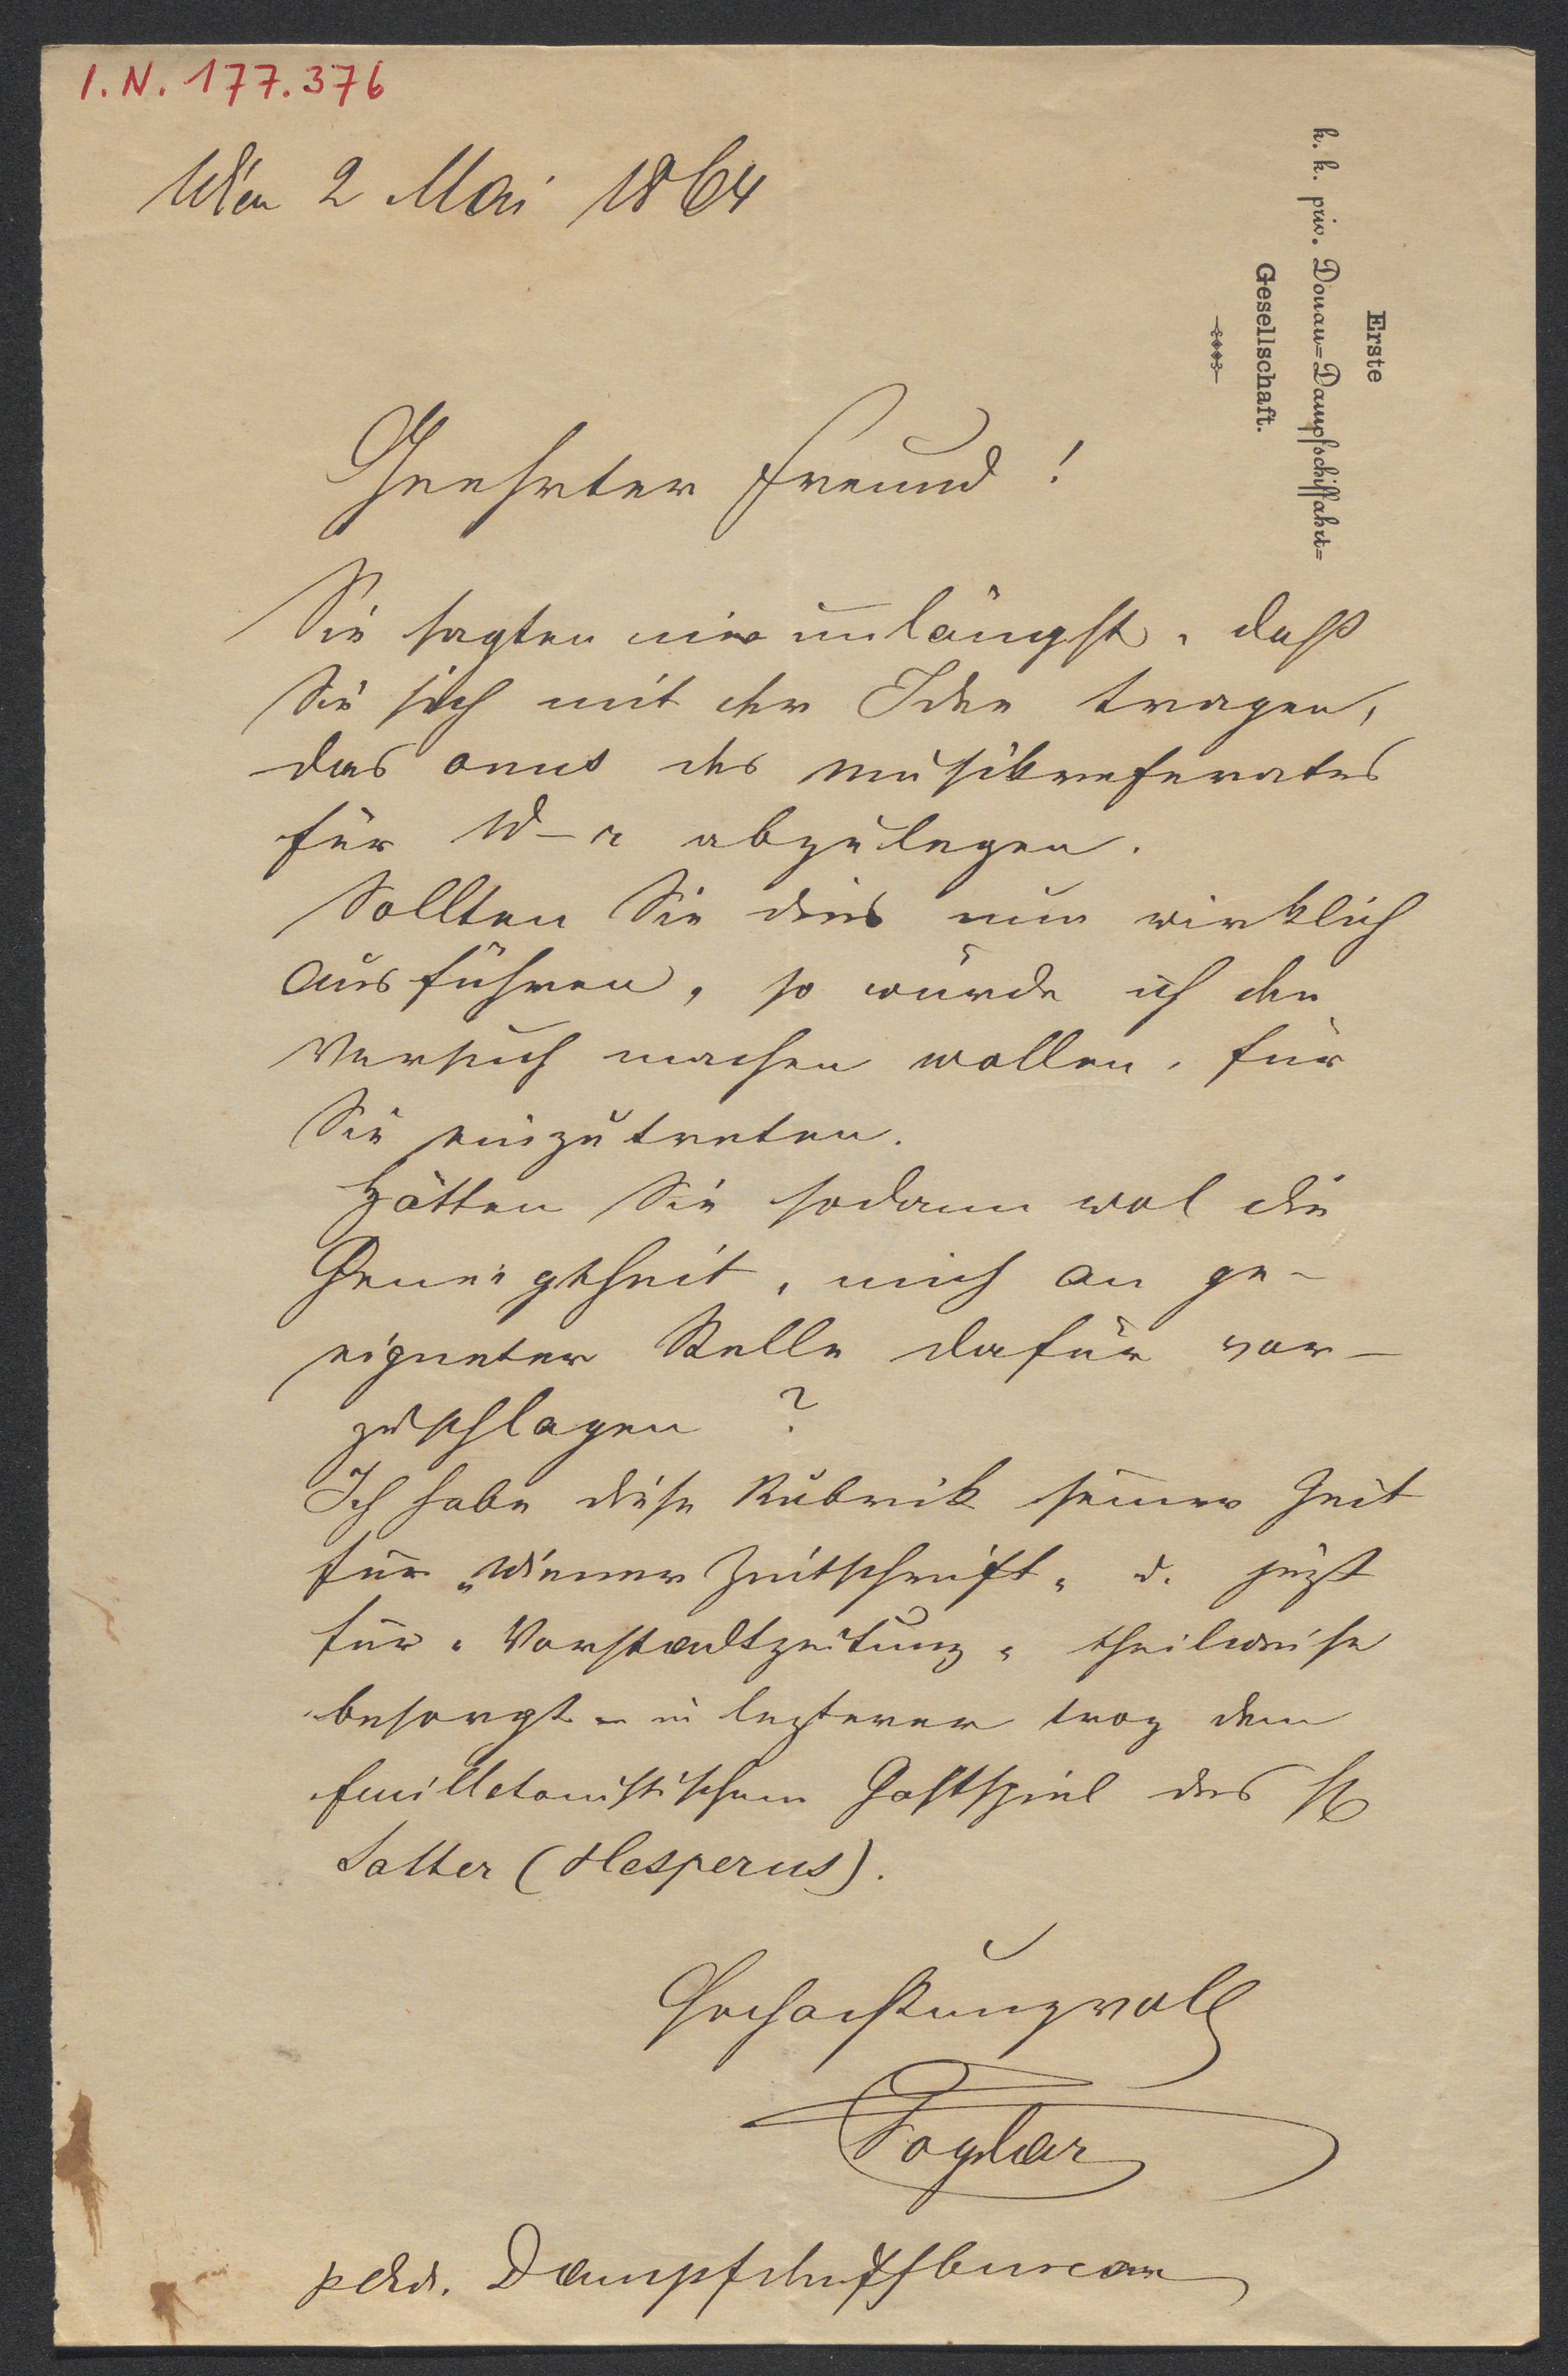 I.N. 177.376
Wien 2 Mai 1864
Erste
k. k. priv. Donau=Dampfschiffahrt=
Gesellschaft.
Geehrter Freund!
Sie sagten mir unlängst, daß
Sie sich mit der Idee tragen,
das onus des Musikreferates
für W–r abzulegen.
Sollten Sie dies nun wirklich
ausführen, so würde ich den
Versuch machen wollen, für
Sie einzutreten.
Hätten Sie sodann wol die
Geneigtheit, mich an ge-
eigneter Stelle dafür vor-
zuschlagen?
Ich habe diese Rubrik seiner Zeit
für „Wiener Zeitschrift" u. jüngst
für „Vorstadtzeitung" theilweise
besorgt – in lezterer troz dem
feuilletonistischem Gastspiel des H
Satter (Hesperus).
Hochachtungsvoll
Foglar
p. adr. Dampfschiffbureau